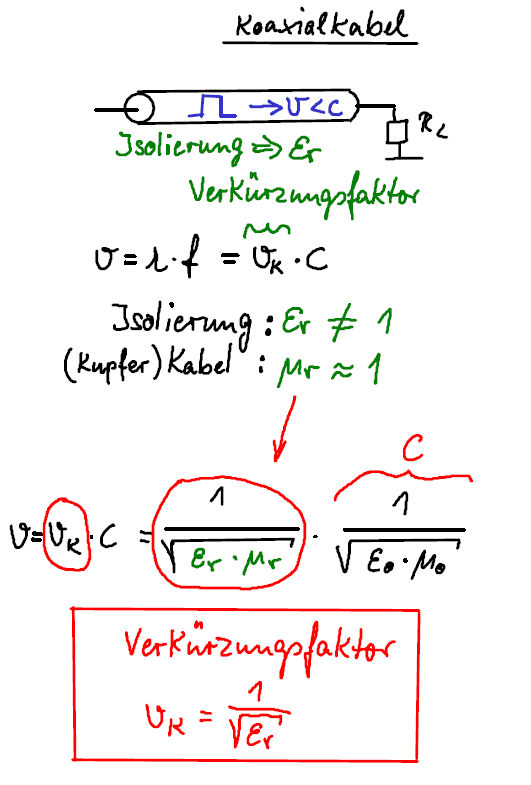 Koaxialkabel
→ v < c
R_L
Isolierung ⇒ εr
Verkürzungsfaktor
v = λ · f = v_K · c
Isolierung : εr ≠ 1
(Kupfer) Kabel : μr ≈ 1
c
v = v_K · c = 1/√(εr · μr) · 1/√(ε0 · μ0)
Verkürzungsfaktor
v_K = 1/√εr